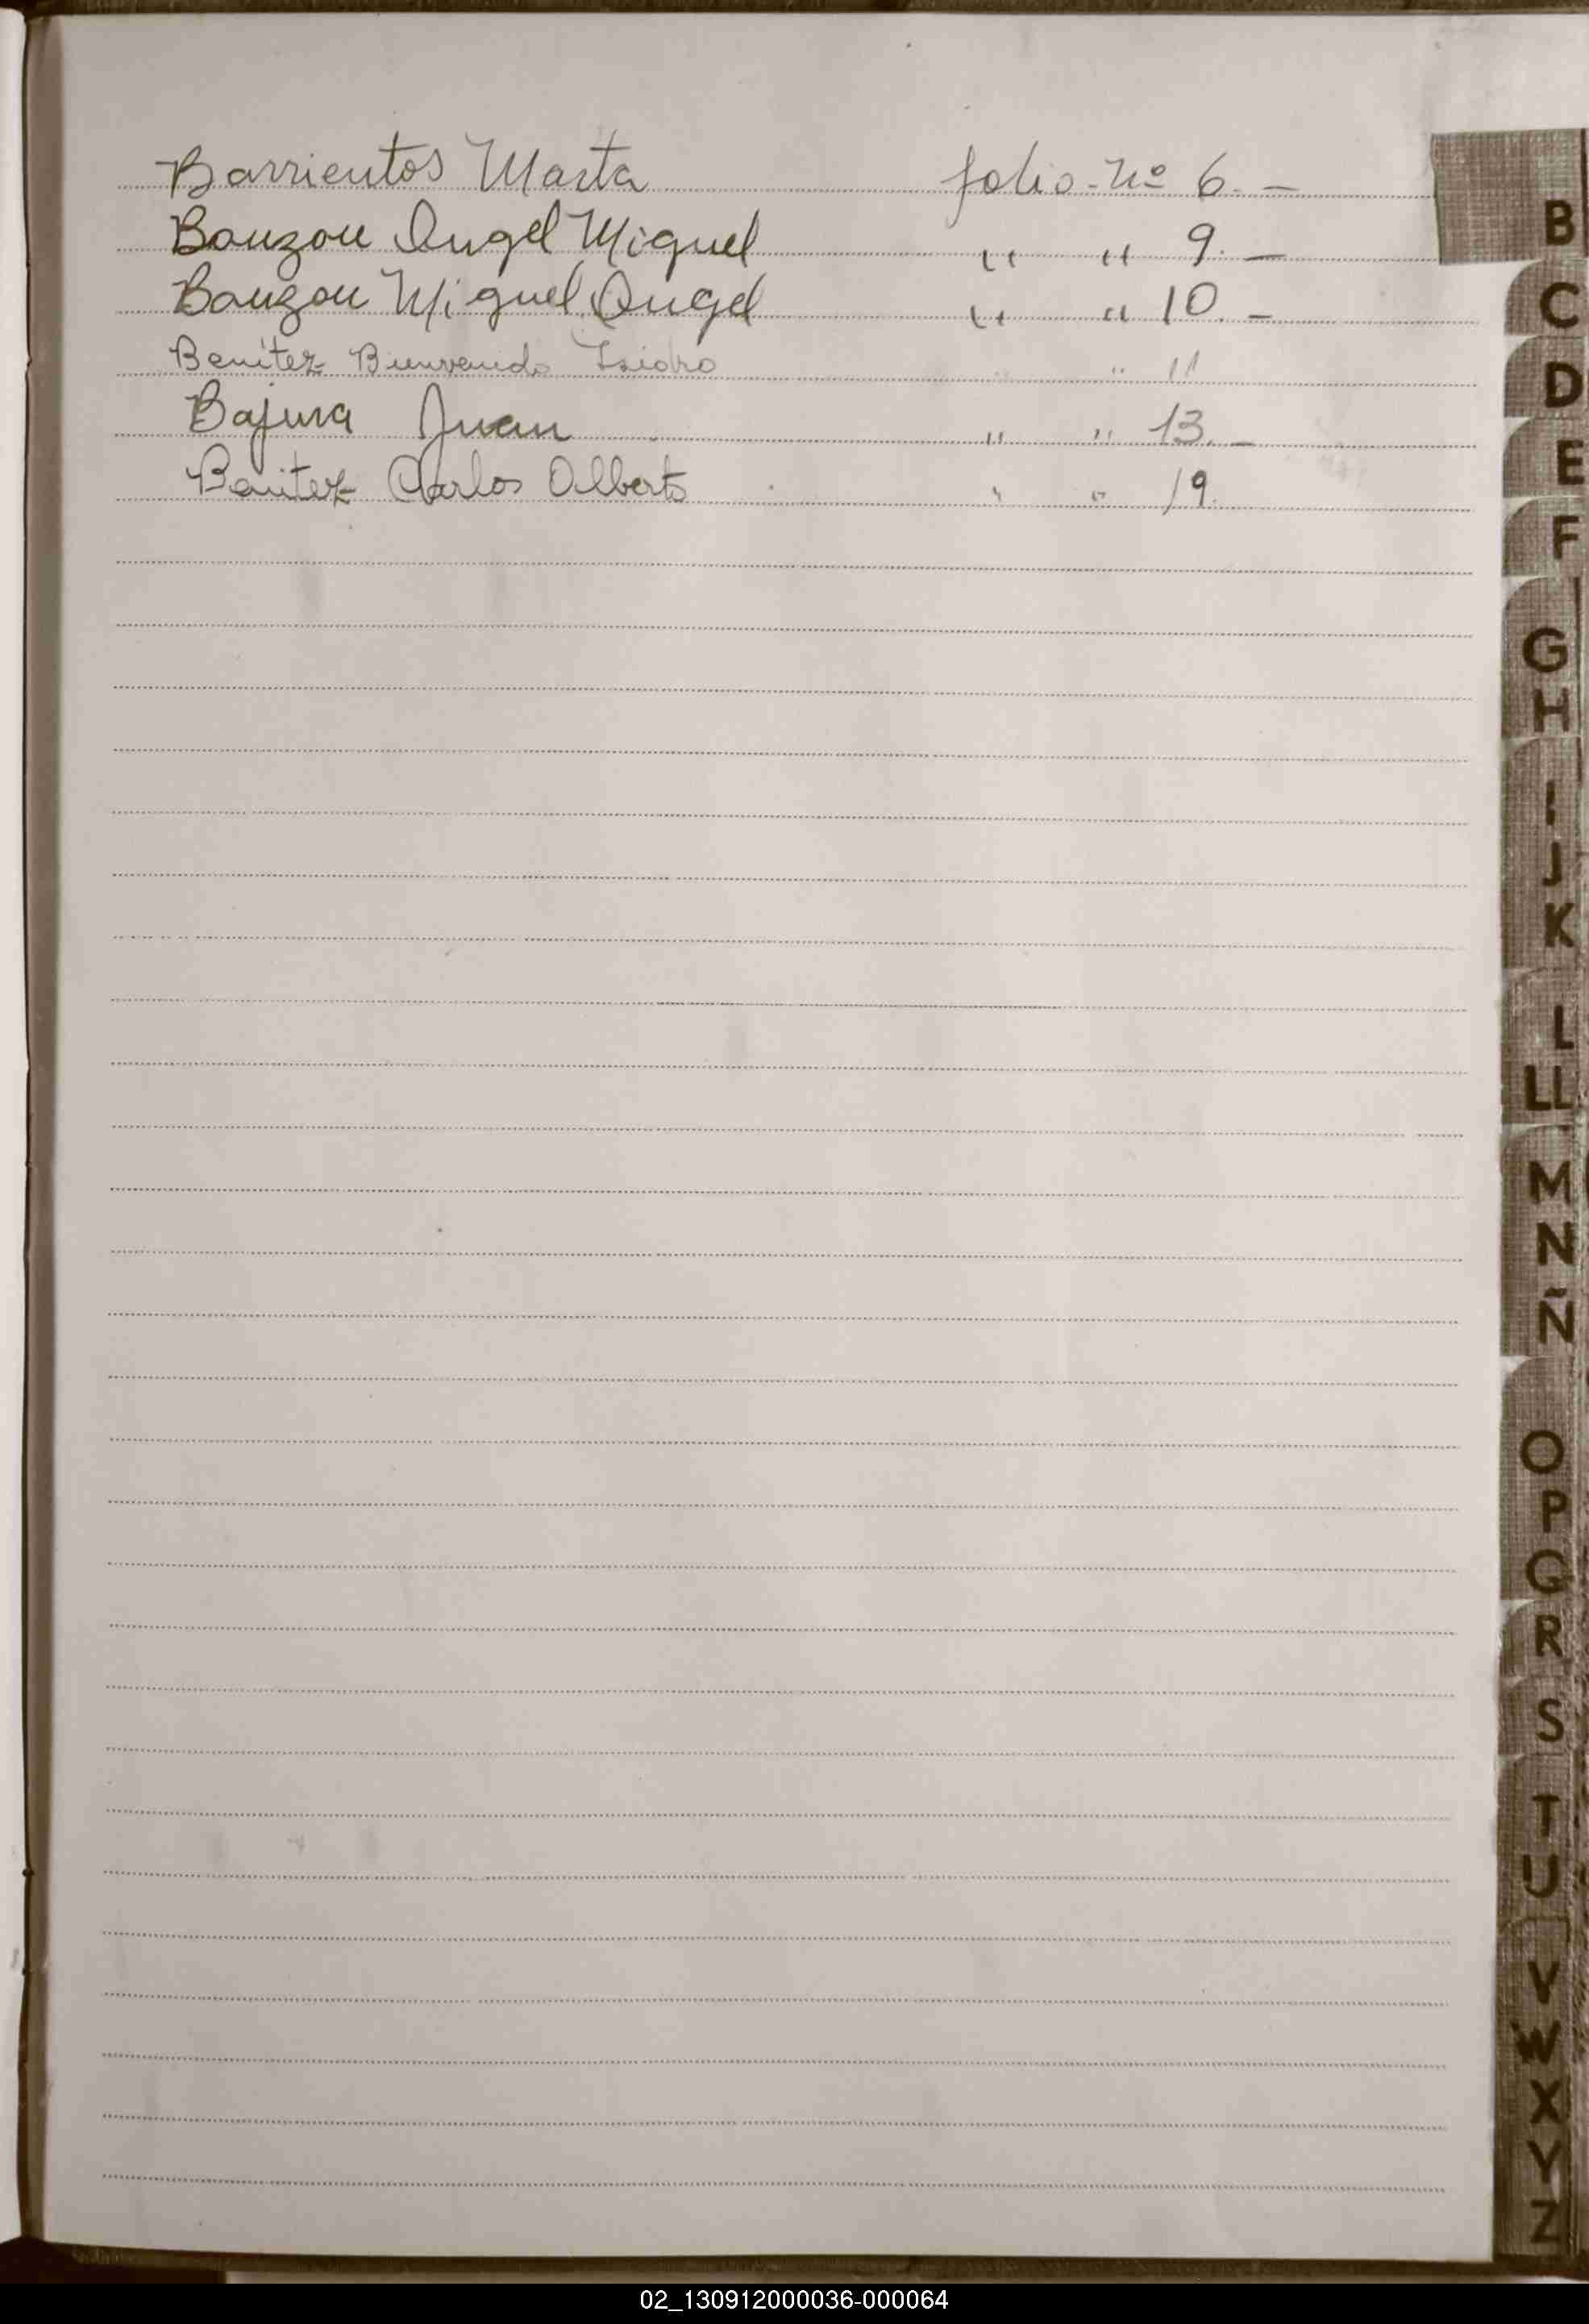 Barrientos Marta folio - nº 6. —
Bouzou Angel Miguel " " 9. —
Bouzou Miguel Angel " " 10. —
Benitez Bienvenido Isidro " " 11
Bajura Juan " " 13. —
Benitez Carlos Alberto " " 19.
B
C
D
E
F
G
H
I
J
K
L
LL
M
N
Ñ
O
P
Q
R
S
T
U
V
W
X
Y
Z
02_130912000036-000064